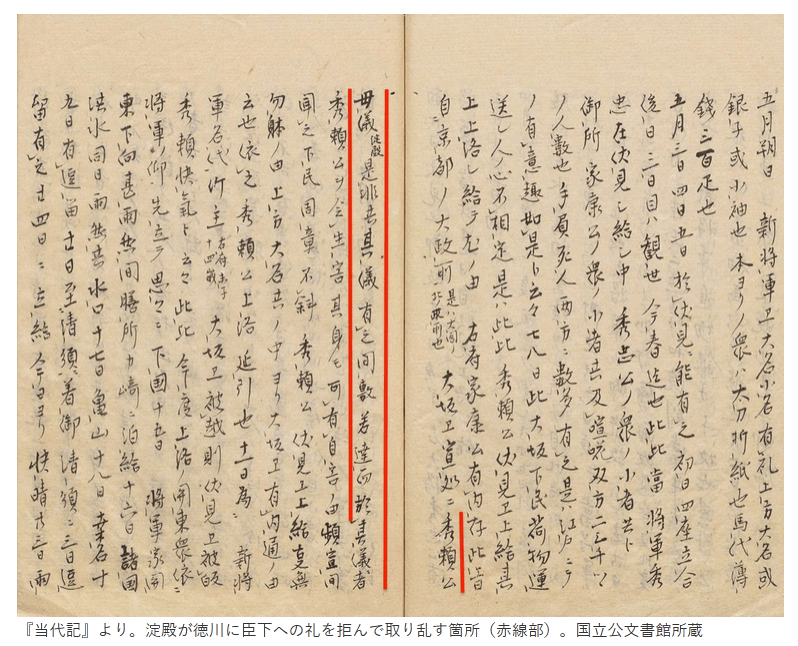 五月朔日 新将軍エ大名小名有礼上方大名或
銀子或小袖也 本ヨリノ衆ハ太刀折紙也馬代薄
銭三百疋也
五月三日四日五日於伏見能有之初日四座立合
後日三日目ハ観世今春迄也此比當将軍秀
忠在伏見シ給シ中秀忠公ノ衆ノ小者共ト
御所家康公ノ衆ノ小者共及喧双方二三千ツヽ
ノ人数也手負死人両方ニ数多有之是ハ江戸ニテ
ノ有意趣如是ト云々七八日此大坂下民荷物運
送シ人心不相定是ハ此比秀頼公伏見エ上給其
上上洛シ給尤ノ由右府家康公有内存此皆
自京都ノ大政所是ハ大閤ノ北政所也大坂エ宣処ニ秀頼公
母儀淀殿是非共其儀有之間敷若達而於其儀者
秀頼公ヲ令生害其身モ可有自害由頻宣間
聞之下民周章不斜秀頼公伏見エ上給無
勿躰ノ由上方大名共ノ中ヨリ大坂エ有内通ノ由
云也依之秀頼公上洛延引也十一日為 新将
軍名代少主右府末子十四歳 大坂エ被越則伏見エ被皈
秀頼快氣ト云々此比今度上洛ノ関東衆依
将軍仰先立テ思々ニ下國十五日 将軍家関
東下向甚雨間膳所カ崎ニ泊給十六日諸國
洪水同日雨然共水口十七日亀山十八日桑名十
九日有逗留廿日至清須着御清須ニ三日逗
留有之廿四日ニ立給今日ヨリ快晴廿三日雨
『当代記』より。淀殿が徳川に臣下への礼を拒んで取り乱す箇所（赤線部）。国立公文書館所蔵